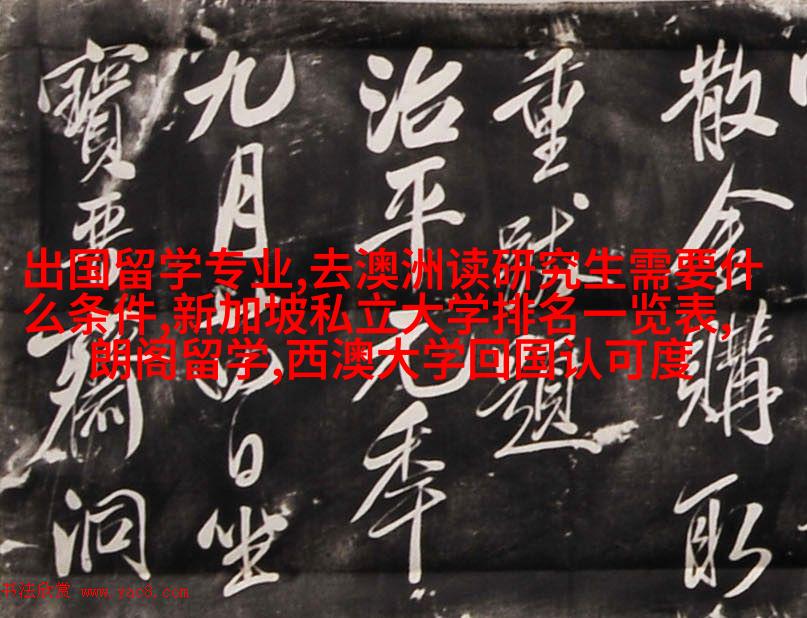 散金購取
重跋題
治平元季
九月日坐
寶晉齋洞
出国留学专业,去澳洲读研究生需要什
么条件,新加坡私立大学排名一览表,
朗阁留学,西澳大学回国认可度
书法欣赏 www.yac8.com